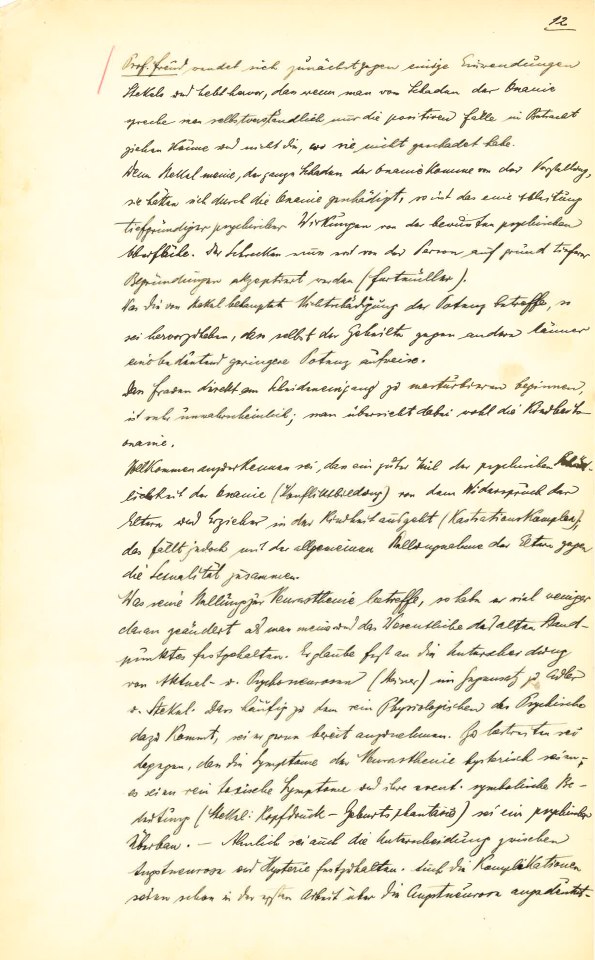 12
Prof. Freud wendet sich zunächst gegen einige Einwendungen
Stekels und hebt hervor, dass wenn man vom Schaden der Onanie
spreche man selbstverständlich nur die positiven Fälle in Betracht
ziehen könne und nicht die, wo sie nicht geschadet habe.
Wenn Stekel meine, der ganze Schaden der Onanie komme von der Vorstellung,
sie hätten sich durch die Onanie geschädigt, so ist das eine
tiefgründiger psychischer Wirkungen von der bewussten psychischen
Oberfläche. Der Schrecken muss erst von der Person auf Grund tieferer
Begründungen akzeptiert werden (Furtmüller).
Was die von Stekel behauptete Nichtschädigung der Potenz betreffe, so
sei hervorzuheben, dass selbst der Geheilte gegen andere Männer
eine bedeutend geringere Potenz aufweise.
Dass Frauen direkt am Scheideneingang zu masturbieren beginnen,
ist sehr unwahrscheinlich; man übersieht dabei wohl die Kindheits-
onanie.
Vollkommen anzuerkennen sei, dass ein guter Teil der psychischen Schäd-
lichkeit der Onanie (Konfliktsbildung) von dem Widerspruch der
Eltern und Erzieher in der Kindheit ausgeht (Kastrationskomplex),
das fällt jedoch mit der allgemeinen Stellungnahme der Eltern gegen
die Sexualität zusammen.
Was seine Stellung zur Neurasthenie betreffe, so habe er viel weniger
daran geändert als man meine und das Wesentliche des alten Stand-
punktes festgehalten. Er glaube fest an die Unterscheidung
von Aktual- u. Psychoneurosen (Steiner) im Gegensatz zu Adler
u. Stekel. Dass häufig zu dem rein Physiologischen das Psychische
dazu kommt, sei er gern bereit anzunehmen. Zu bestreiten sei
dagegen, dass die Symptome der Neurasthenie hysterisch seien;
es seien rein toxische Symptome und ihre event. symbolische Be-
deutung (Stekel: Kopfdruck – Geburtsphantasie) sei ein psychischer
Überbau. – Ähnlich sei auch die Unterscheidung zwischen
Angstneurose und Hysterie festzuhalten. Auch die Komplikationen
seien schon in der ersten Arbeit über die Angstneurose angedeutet.